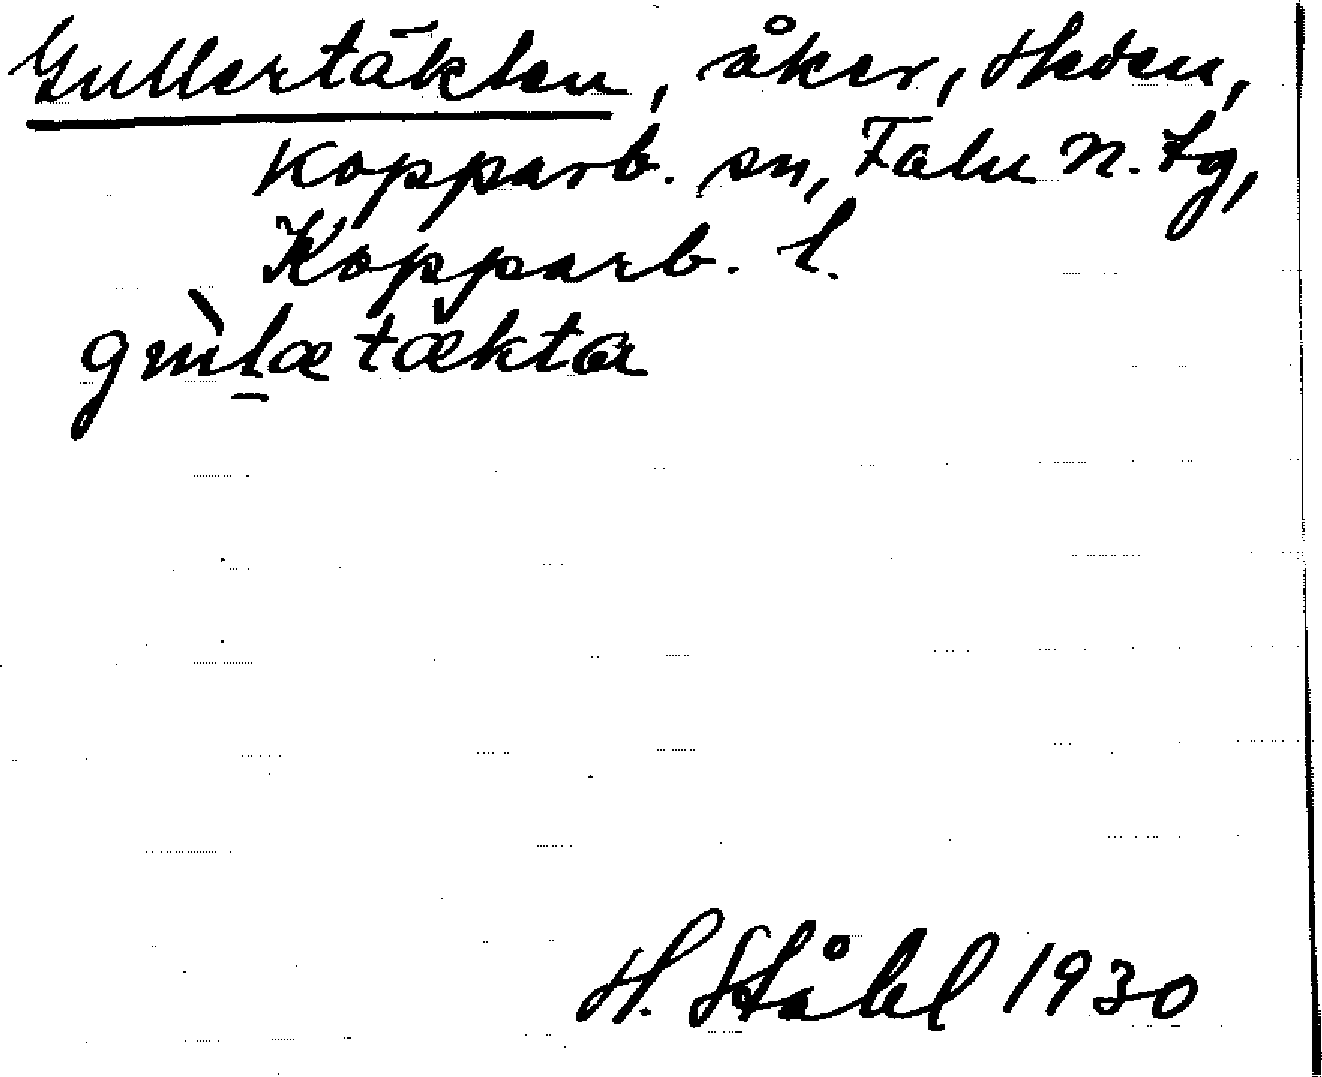 Gullertäkten, åker, Heden,
Kopparb. sn, Falu n. tg,
Kopparb. l.
gùlætækta
H. Ståhl 1930